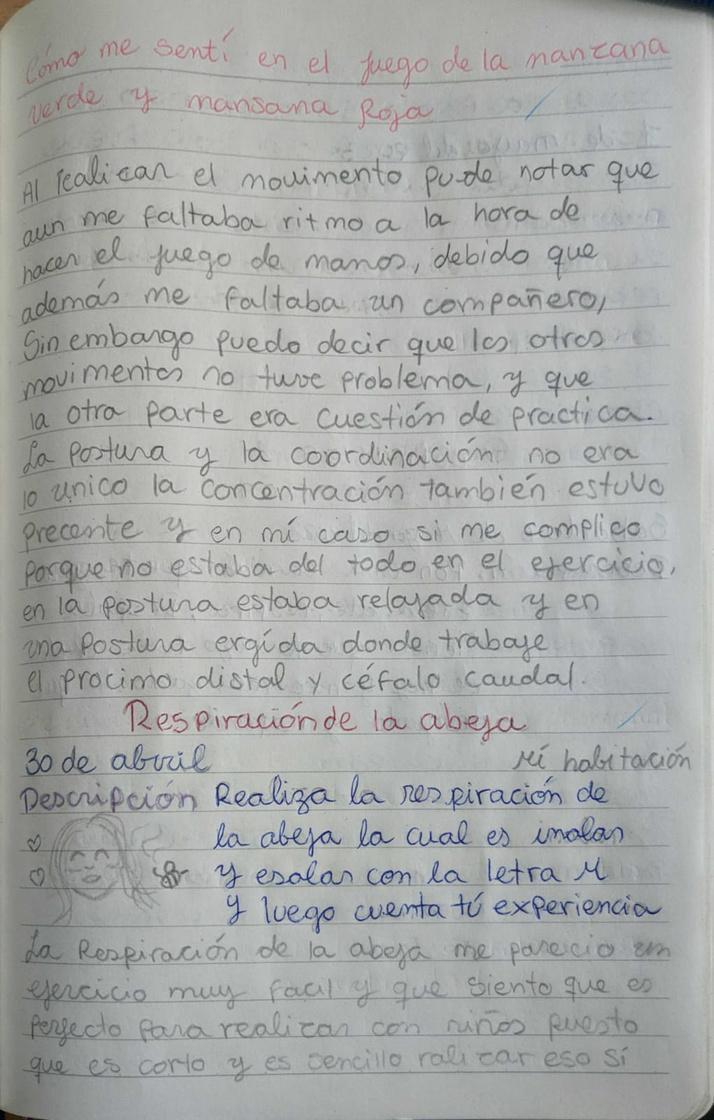 Cómo me sentí en el juego de la manzana
verde y mansana Roja
Al realizar el movimento pude notar que
aun me faltaba ritmo a la hora de
hacer el juego de manos, debido que
además me faltaba un compañero,
Sin embargo puedo decir que los otros
movimentos no tuve problema, y que
la otra parte era cuestión de practica.
La postura y la coordinación no era
lo unico la concentración también estuvo
precente y en mi caso si me complico
porque no estaba del todo en el ejercicio,
en la postura estaba relajada y en
una postura ergida donde trabaje
el procimo distal y céfalo caudal.
Respiración de la abeja
30 de abril Mi habitación
Descripción Realiza la respiración de
la abeja la cual es inalar
y esalar con la letra M
y luego cuenta tú experiencia
La Respiración de la abeja me parecio un
ejercicio muy facil y que siento que es
perfecto para realizar con niños puesto
que es corto y es cencillo ralizar eso sí